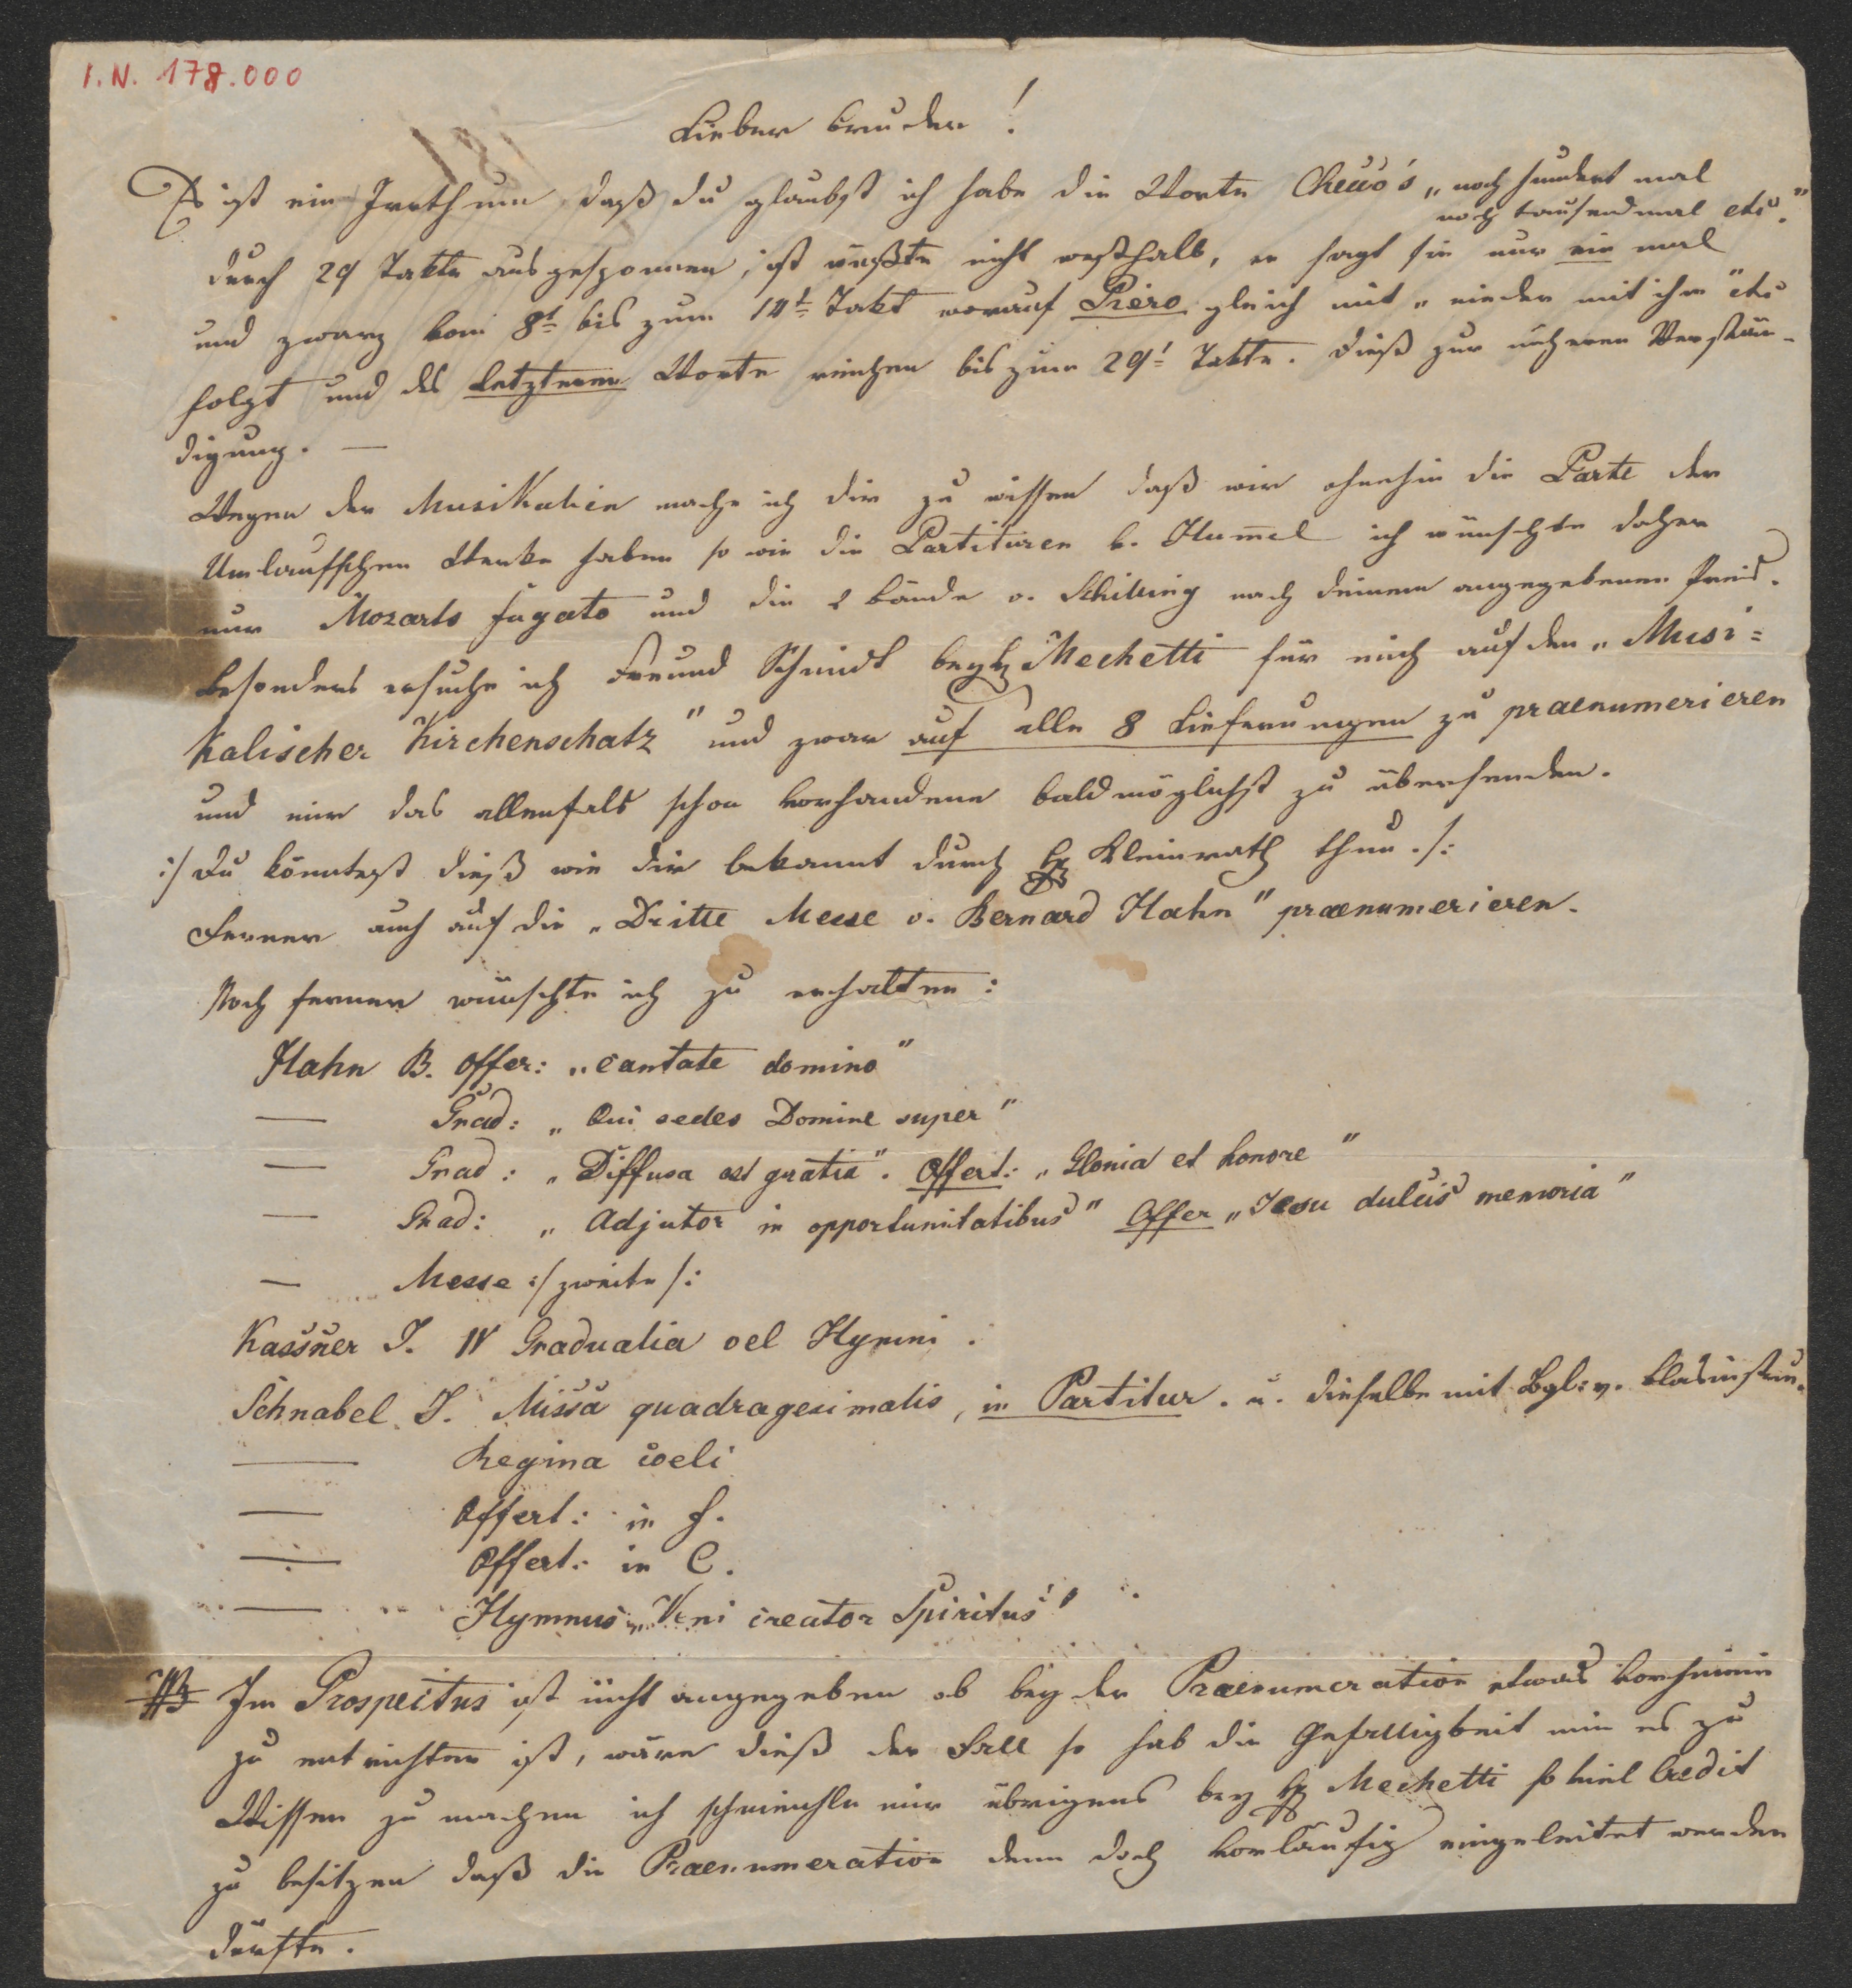 I.N. 178.000
Lieber Bruder!
Es ist ein Irrthum, daß du glaubst ich habe die Worte Checco's „noch hundert mal
noch tausendmal etc."
durch 29 Takte ausgesponnen, ist wüßte nicht weßhalb, er sagt sie nur ein mal
und zwarg vom 8t bis zum 14t Takt worauf Piero gleich mit „nieder mit ihm" etc
folgt und des letzteren Worte reichen bis zum 29t Takte. Dieß zur näheren Verstän-
digung. —
Wegen der Musikalien mache ich dir zu wissen daß wir ohnehin die Parte der
Umlaufschen Werke haben so wie die Partituren v. Hummel ich wünschte daher
nur Mozarts fugato und die 2 Bände v. Schilling nach deinem angegebenen Preis.
Besonders ersuche ich Freund Schmidt bey H Mechetti für mich auf den „Musi=
kalischer Kirchenschatz" und zwar auf alle 8 Lieferungen zu praenumerieren
und mir das allenfals schon vorhandene baldmöglichst zu übersenden.
:/ Du könntest dieß wie dir bekannt durch H Kleinrath thun. /:
Ferner auch auf die „Dritte Messe v. Bernard Hahn" praenumerieren.
Noch ferner wünschte ich zu erhalten:
Hahn B. Offer: „cantate domino"
— Grad: „Qui sedes Domine super"
— Grad: „Diffusa est gratia". Offert: „Gloria et honore"
— Grad: „Adjutor in opportunitatibus" Offer „Jesu dulcis memoria"
— Messe :/ zweite /:
Kassner J. IV Gradualia vel Hymni.
Schnabel J. Missa quadragesimalis, in Partitur. u. dieselbe mit Bgl: v. Blasinstrum.
— Regina coeli
— Offert: in f.
— Offert: in C.
— Hymnus „Veni creator Spiritus"
NB Im Prospectus ist nicht angegeben ob bey der Praenumeration etwas vorhinein
zu entrichten ist, wäre dieß der Fall so hab die Gefälligkeit mir es zu
Wissen zu machen ich schmeichle mir übrigens bey H Mechetti so viel Credit
zu besitzen daß die Praenumeration denn doch vorläufig eingeleitet werden
dürfte.